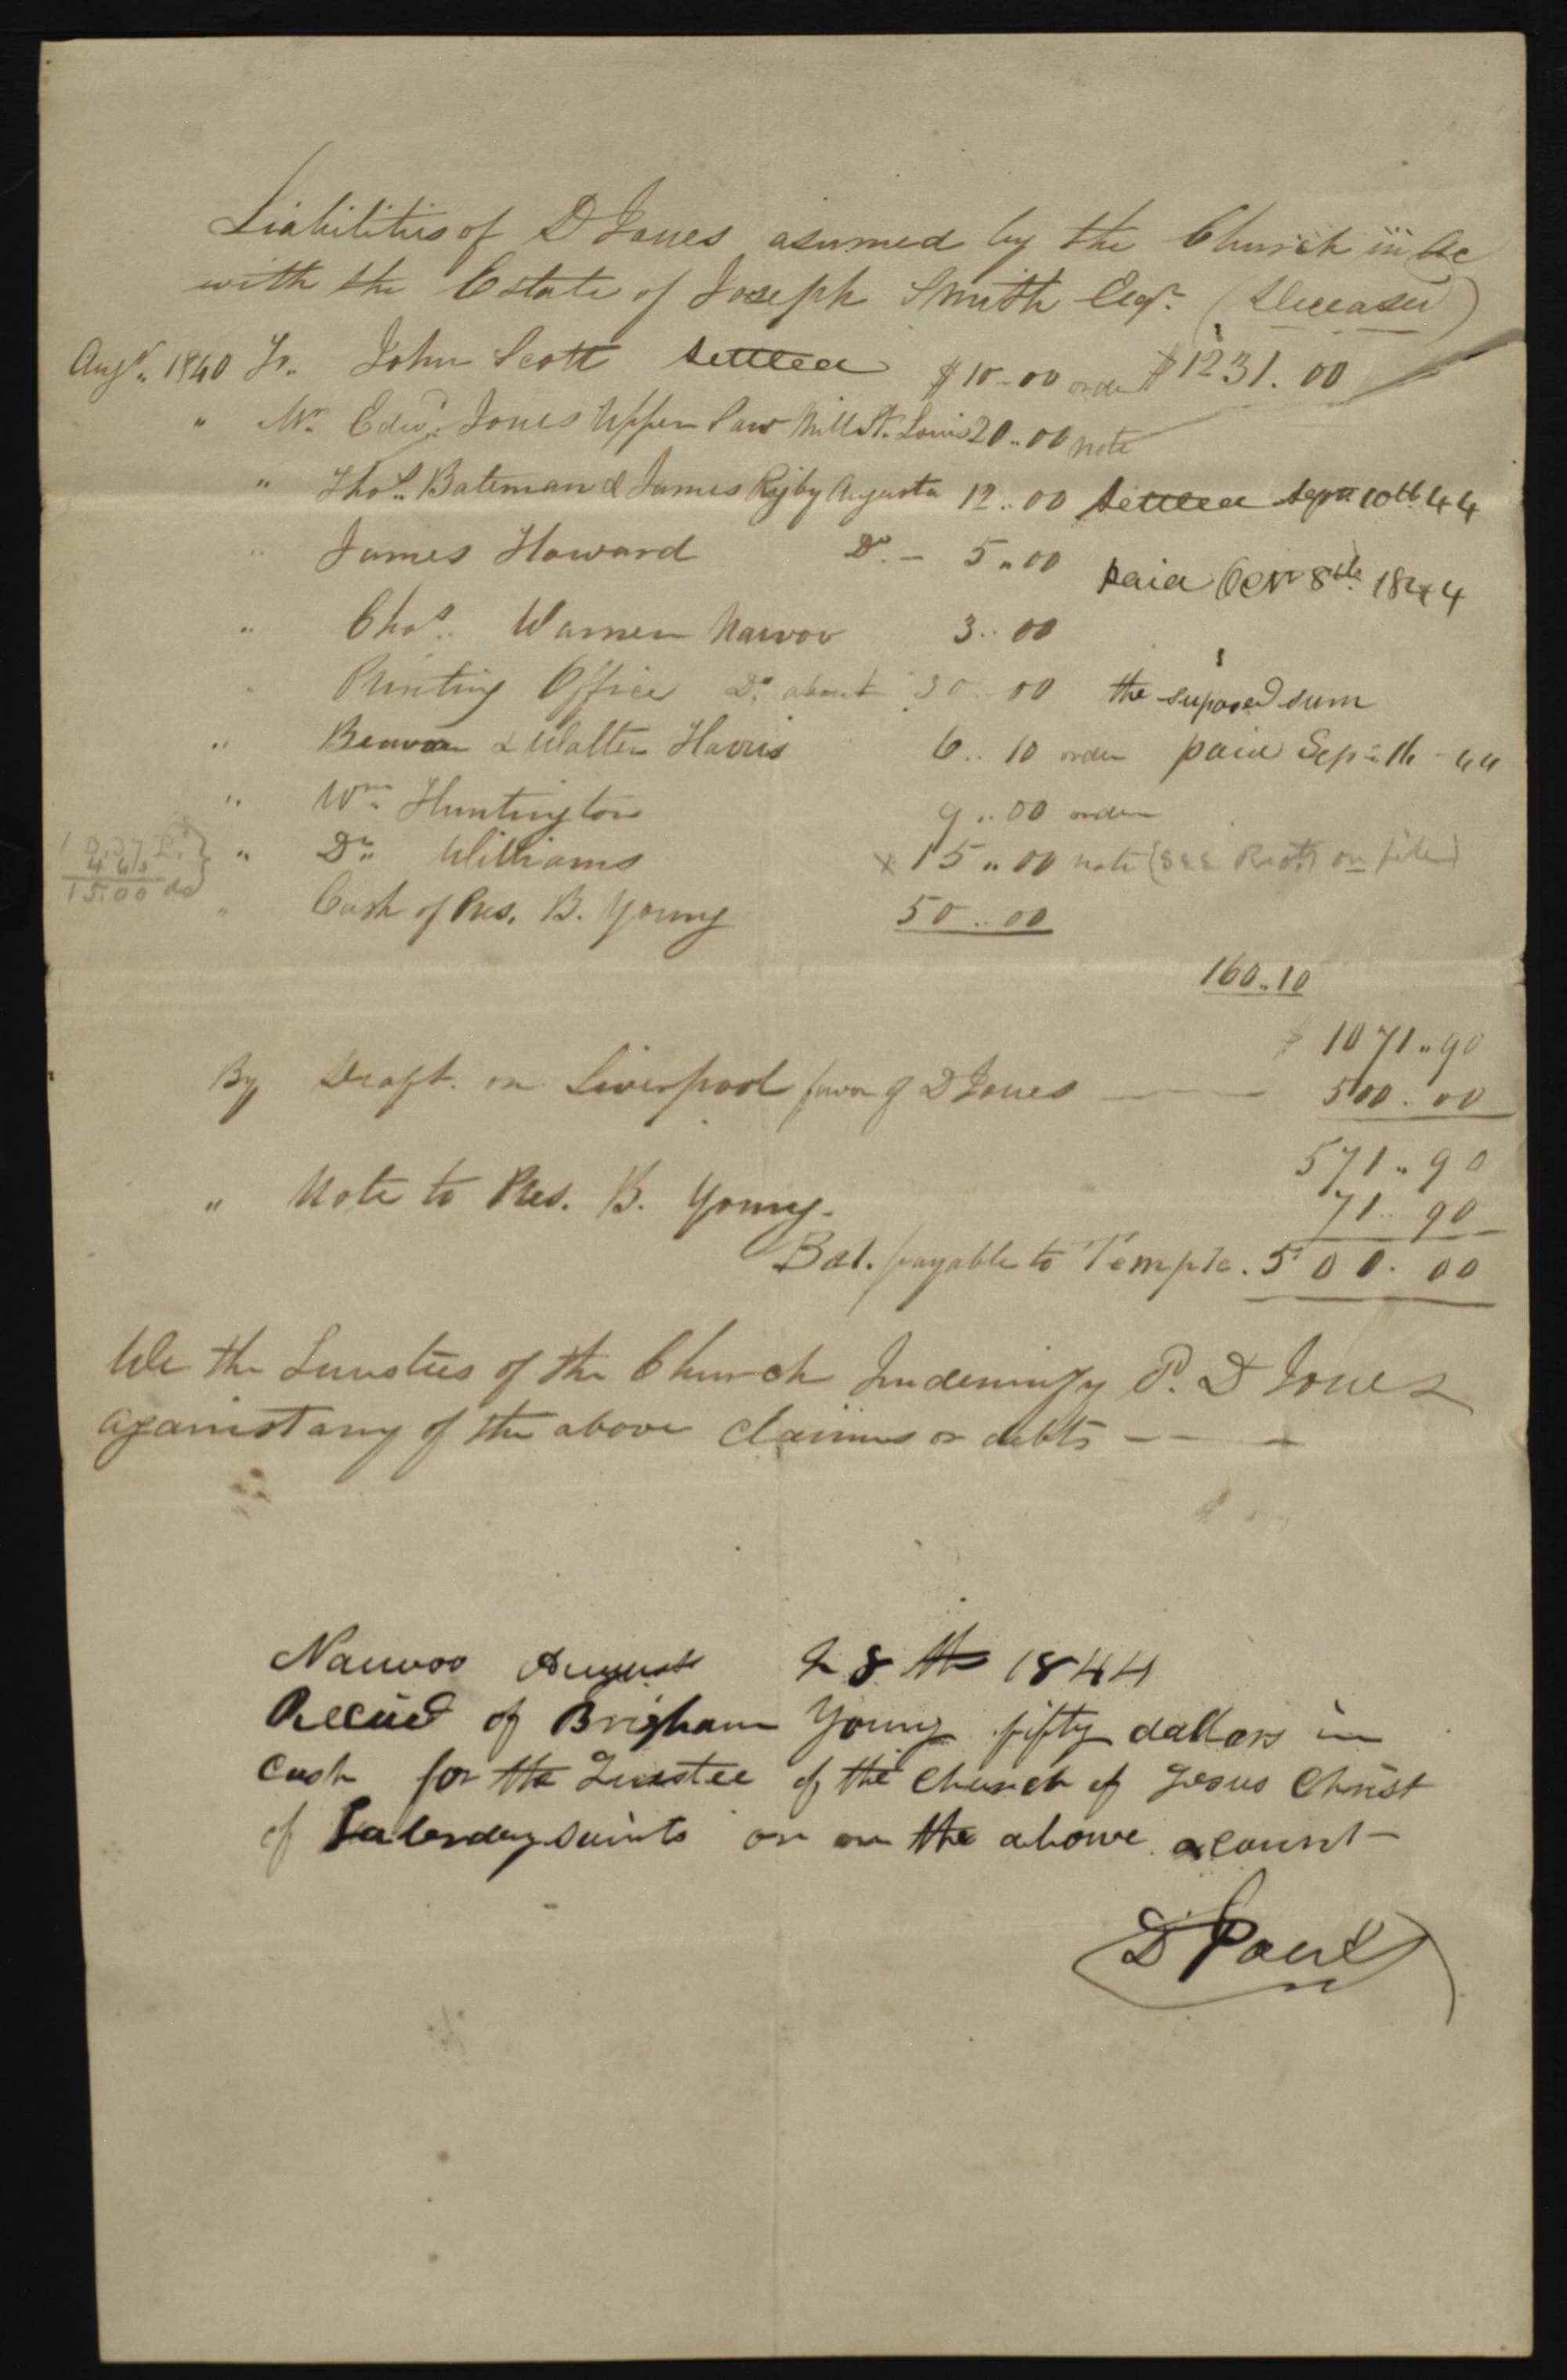 Liabilities of D Jones asumed by the Church in ac
with the Estate of Joseph Smith Esqr. (Deceased)
Augt. 1840 To. John Scott settled $10-00 order $1231.00
" Mr. Edwd. Jones Upper Saw Mill St. Louis 20..00 note
" Thos. Bateman & James Rigby Augusta 12..00 settled Sept. 10th 44
" James Howard Do. - 5..00 paid Oct 8th 1844
" Chas. Warner Nauvoo 3..00
" Printing Office Do. about 30..00 the suposed sum
" & Walter Harris 6..10 order paid Sep 16 - 44
" Wm. Huntington 9..00 order
" Dr. Williams x 15..00 note (see Rect. on file)
15.00
" Cash of Pres. B. Young 50..00
160..10
$ 1071..90
By Draft. on Liverpool favor of D Jones — — 500..00
571..90
" Note to Pres. B. Young. 71..90
Bal. payable to Temple. 500.00
We the Trustees of the Church Indemnify P. D Jones
against any of the above claims or debts — —
Nauvoo August 28th 1844
Recied of Brigham Young fifty dallars in
Cash for the Trustee of the Church of Jesus Christ
of Laterday saints on on the above acount —
D Jones